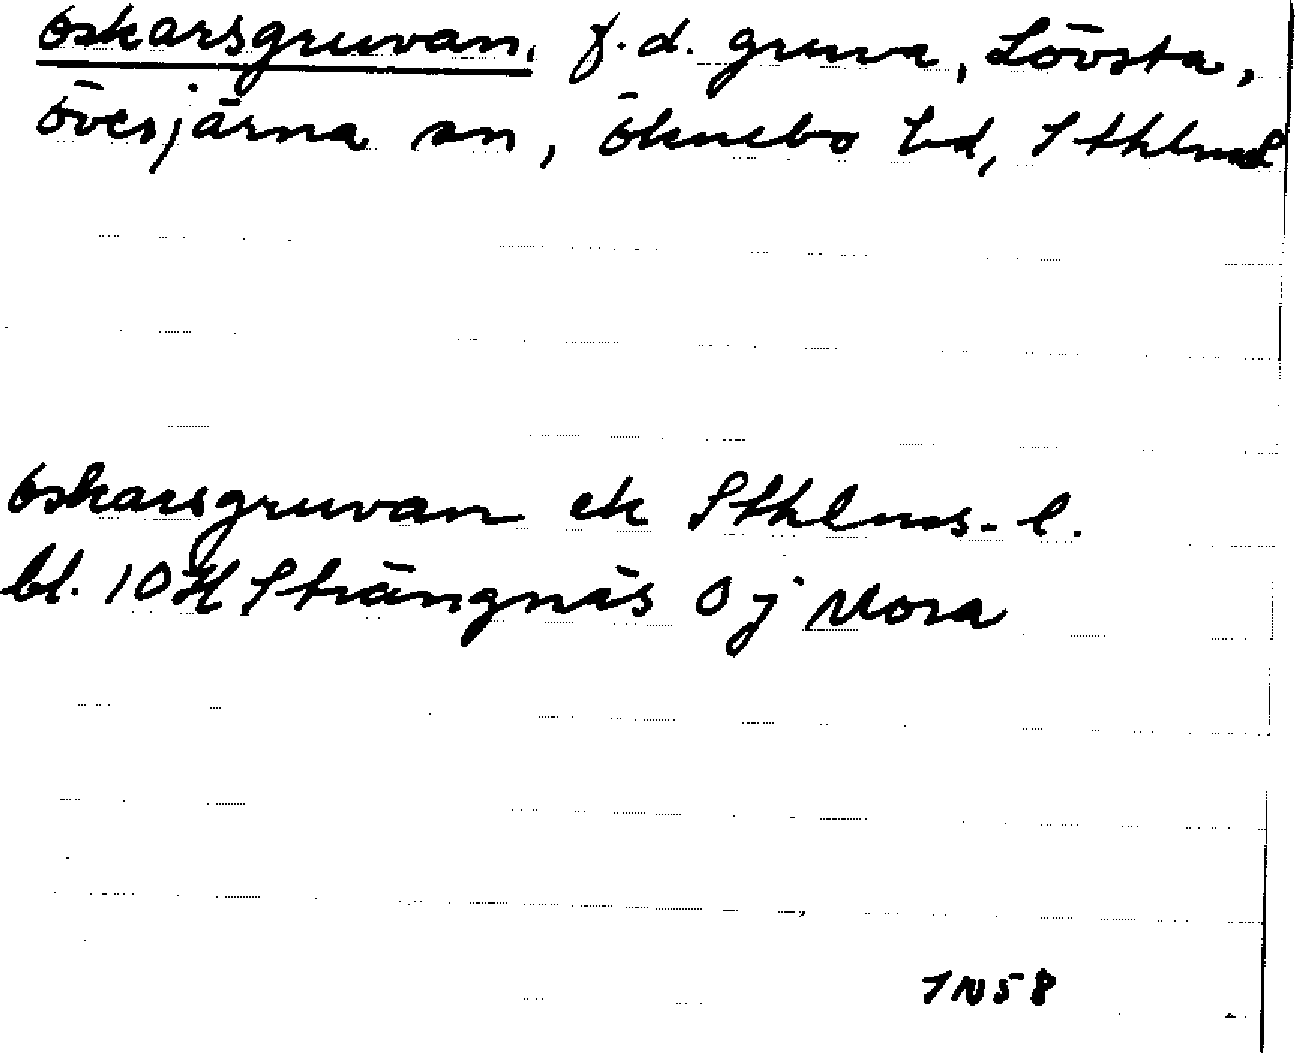 Oskarsgruvan, f.d. gruva, Lövsta,
Överjärna sn, Öknebo hd, Sthlms l
Oskarsgruvan ek Sthlms-l.
bl. 10H Strängnäs 0j Mora
TN58